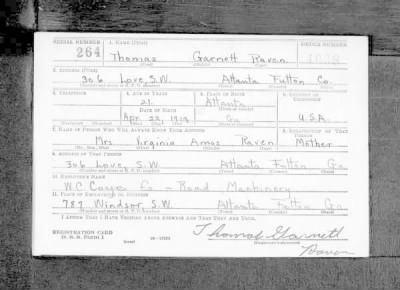 SERIAL NUMBER 1. NAME (Print) ORDER NUMBER
264 Thomas Garnett Raven
(First) (Middle) (Last)
2. ADDRESS (Print)
306 Love, S.W. Atlanta Fulton Co.
3. TELEPHONE 4. AGE IN YEARS 5. PLACE OF BIRTH 6. COUNTRY OF CITIZENSHIP
21 Atlanta
DATE OF BIRTH
Apr. 22, 1919 Ga U.S.A.
7. NAME OF PERSON WHO WILL ALWAYS KNOW YOUR ADDRESS 8. RELATIONSHIP OF THAT PERSON
Mrs. Virginia Amos Raven Mother
9. ADDRESS OF THAT PERSON
306 Love, S.W. Atlanta Fulton Ga
10. EMPLOYER'S NAME
W.C. Co. – Road Machinery
11. PLACE OF EMPLOYMENT OR BUSINESS
787 Windsor, S.W. Atlanta Fulton Ga
I AFFIRM THAT I HAVE VERIFIED ABOVE ANSWERS AND THAT THEY ARE TRUE.
REGISTRATION CARD
D. S. S. Form 1
Thomas Garnett
Raven